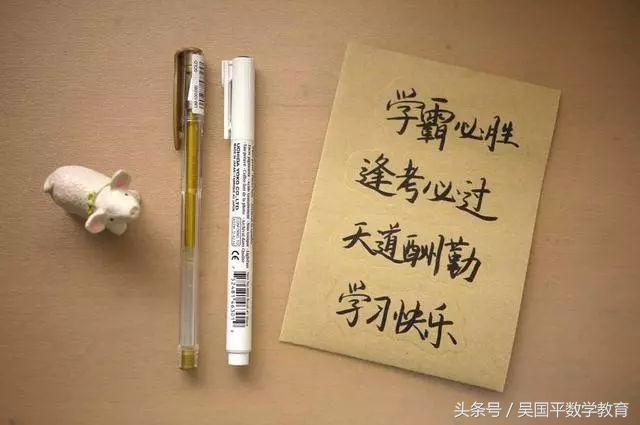 学霸必胜
逢考必过
天道酬勤
学习快乐
UCHIDA YOKO CO., LTD.
头条号/吴国平数学教育